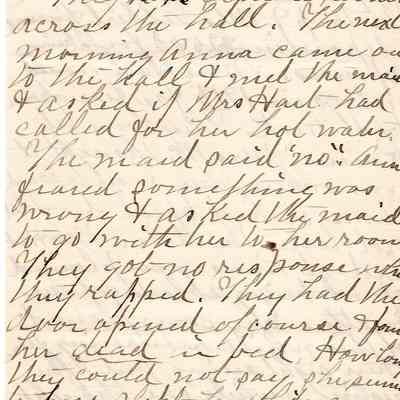 across the hall. The next
morning Anna came ou
to the hall & met the mai
& asked if Mrs Hart had
called for her hot water.
The maid said "no". Ann
feared something was
wrong & asked the maid
to go with her to her room
They got no response when
they rapped. They had the
door opened of course & foun
her dead in bed. How lon
they could not say she seem